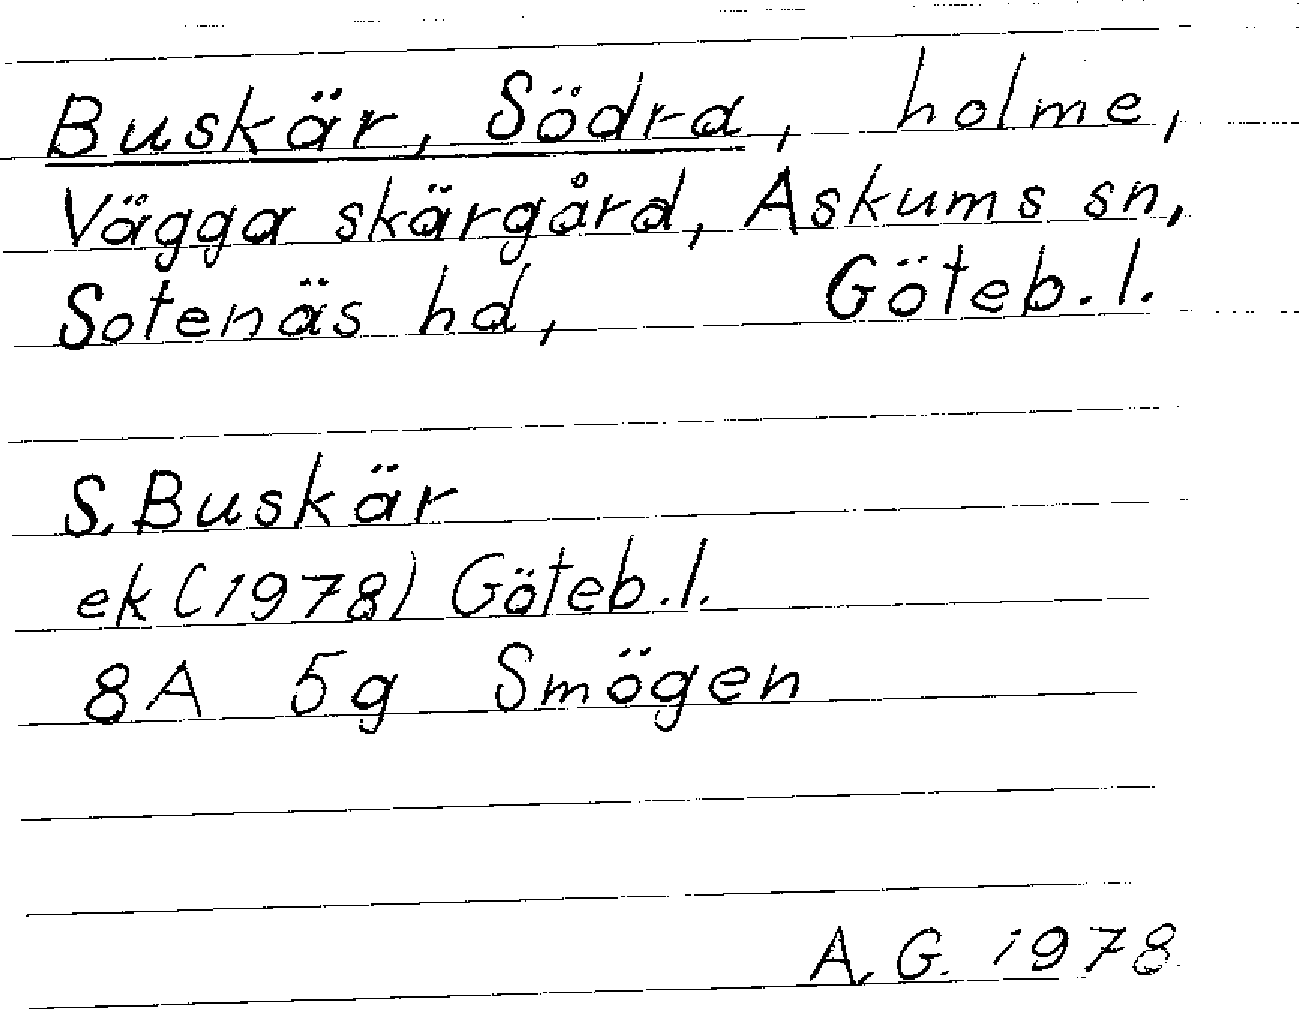 Buskär, Södra, holme,
Vägga skärgård, Askums sn,
Sotenäs hd, Göteb.l.
S. Buskär
ek (1978) Göteb.l.
8A 5g Smögen
A. G. 1978